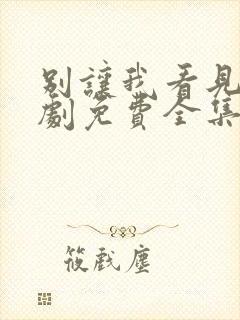 別讓我看見
劇免費全集
筱戲塵